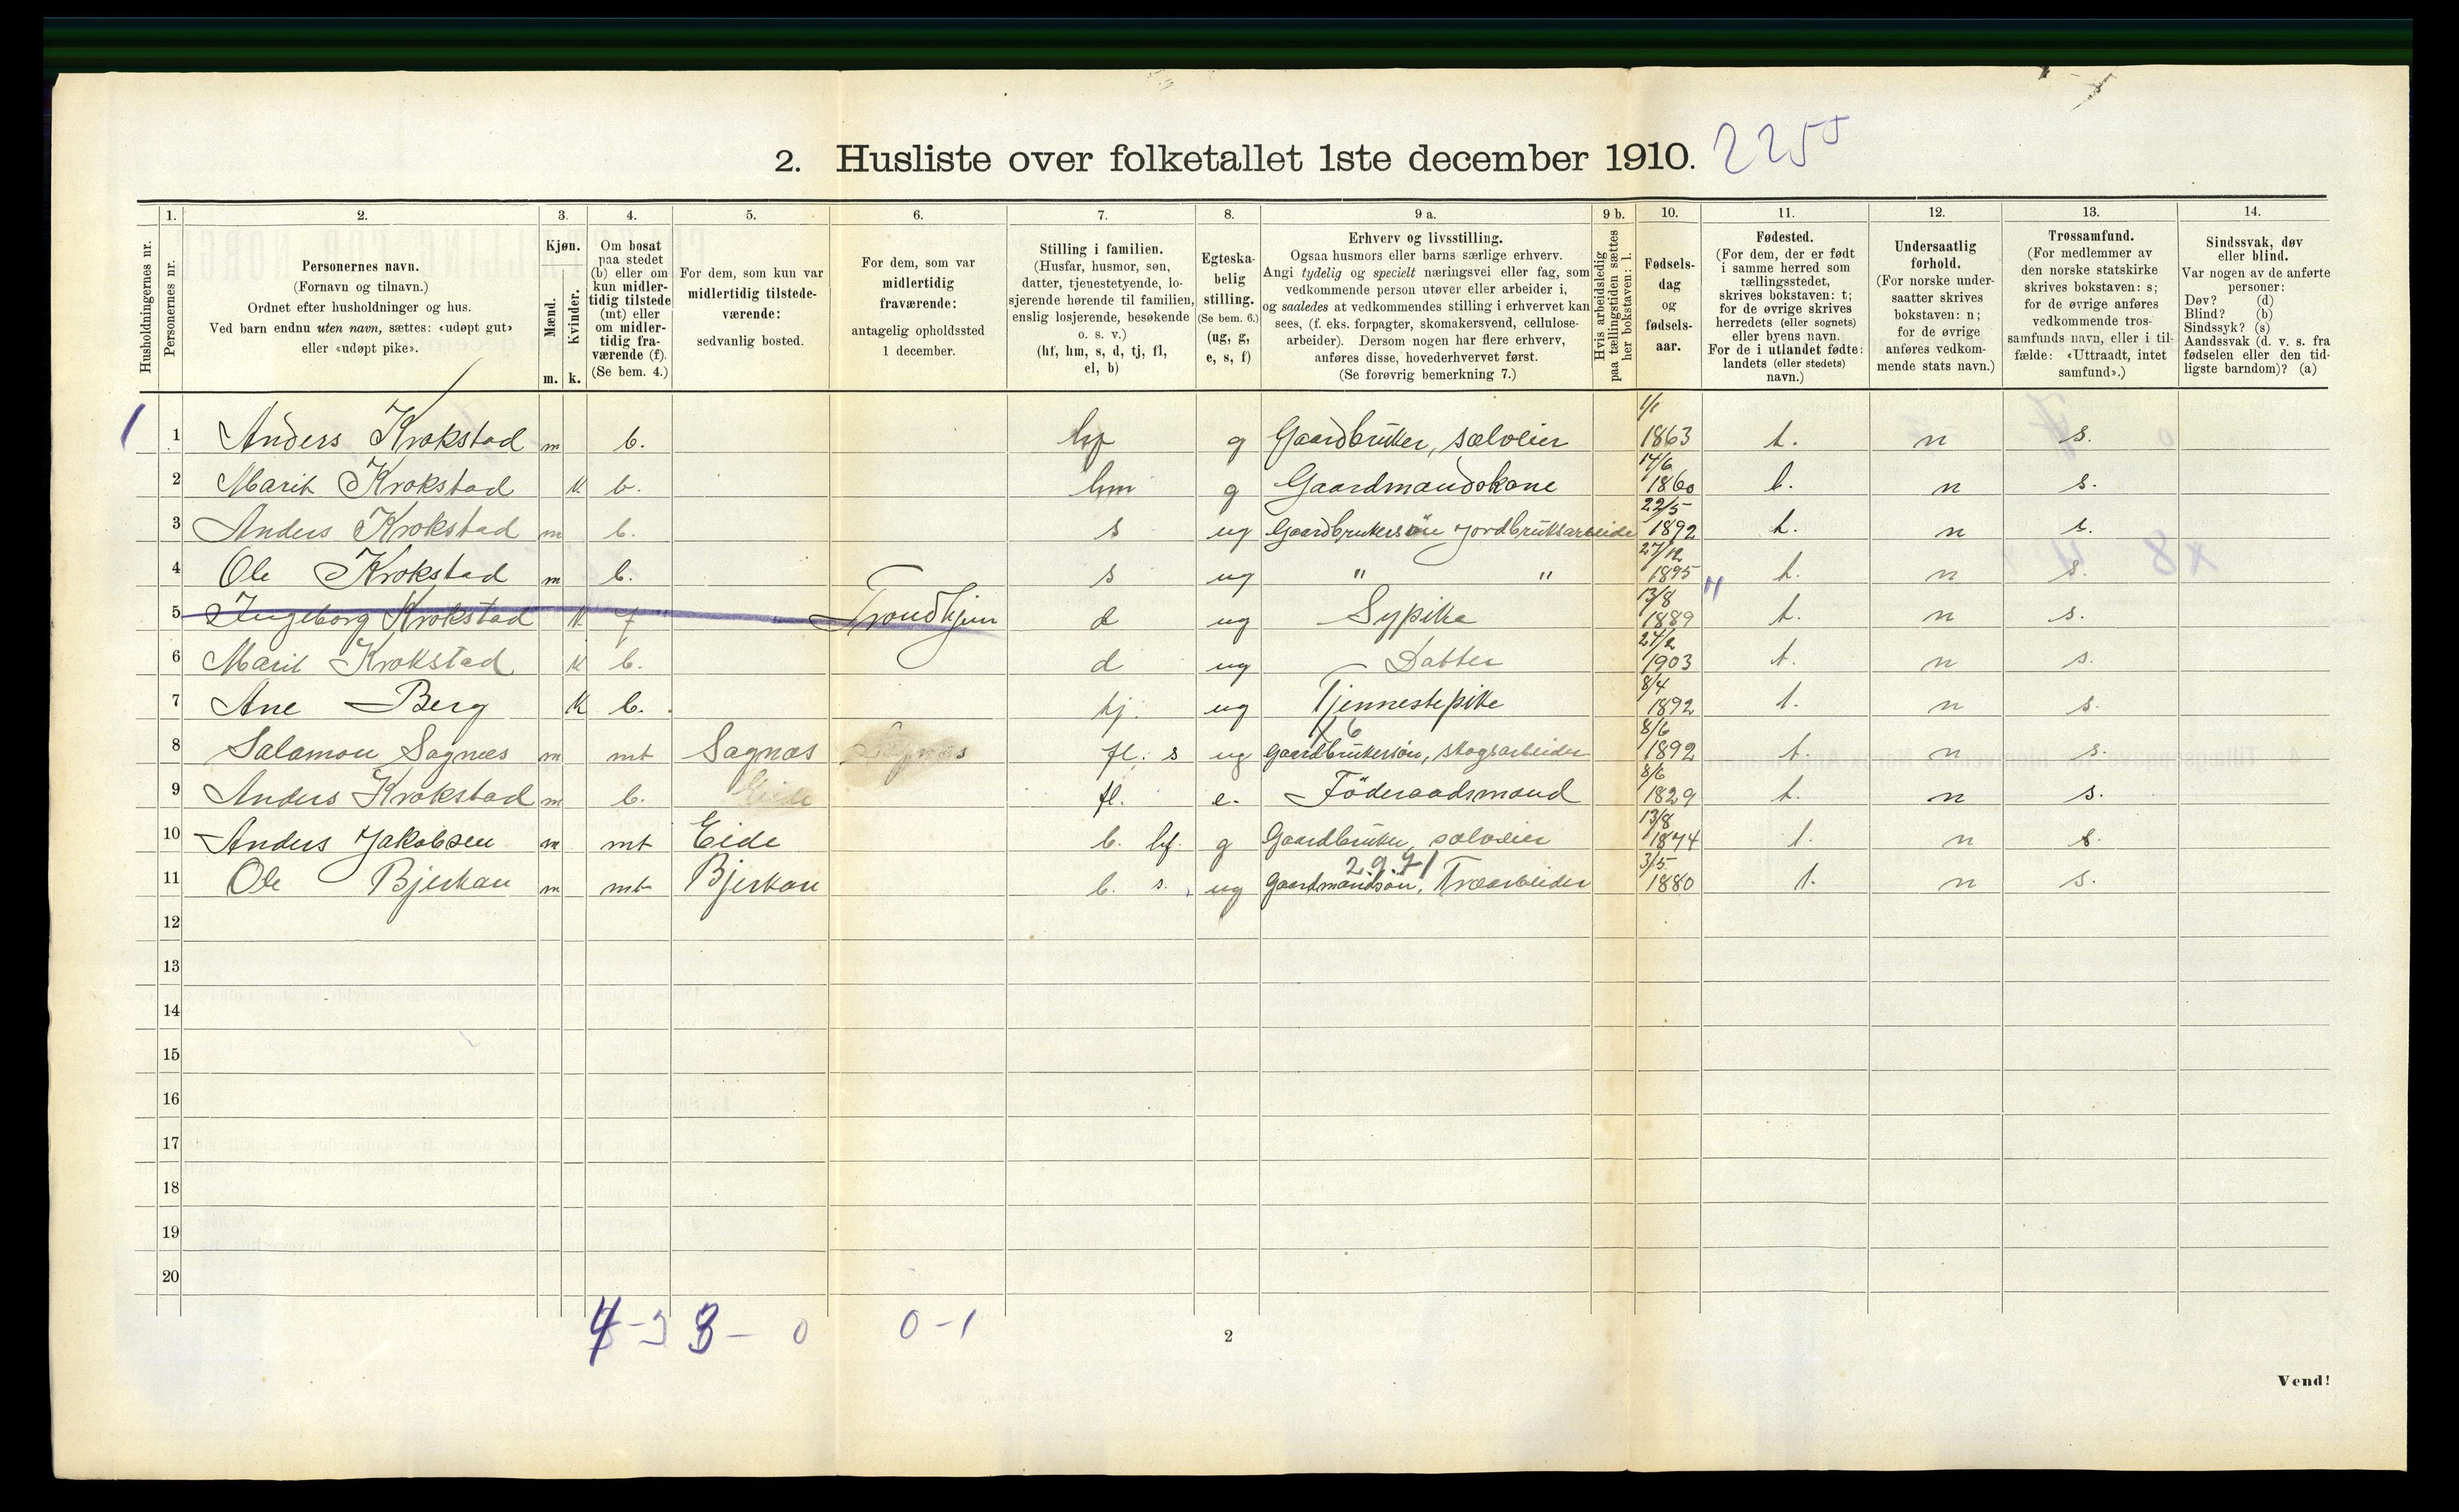 2. Husliste over folketallet 1ste december 1910. 2255
Husholdningernes nr.
1. Personernes nr.
2. Personernes navn. (Fornavn og tilnavn.) Ordnet efter husholdninger og hus. Ved barn endnu uten navn, sættes: «udøpt gut» eller «udøpt pike».
3. Kjøn. Mænd. m. Kvinder. k.
4. Om bosat paa stedet (b) eller om kun midlertidig tilstede (mt) eller om midlertidig fraværende (f). (Se bem. 4.)
5. For dem, som kun var midlertidig tilstedeværende: sedvanlig bosted.
6. For dem, som var midlertidig fraværende: antagelig opholdssted 1 december.
7. Stilling i familien. (Husfar, husmor, søn, datter, tjenestetyende, losjerende hørende til familien, enslig losjerende, besøkende o. s. v.) (hf, hm, s, d, tj, fl, el, b)
8. Egteskabelig stilling. (Se bem. 6.) (ug, g, e, s, f)
9 a. Erhverv og livsstilling. Ogsaa husmors eller barns særlige erhverv. Angi tydelig og specielt næringsvei eller fag, som vedkommende person utøver eller arbeider i, og saaledes at vedkommendes stilling i erhvervet kan sees, (f. eks. forpagter, skomakersvend, cellulosearbeider). Dersom nogen har flere erhverv, anføres disse, hovederhvervet først. (Se forøvrig bemerkning 7.)
9 b. Hvis arbeidsledig paa tællingstiden sættes her bokstaven: l.
10. Fødselsdag og fødselsaar.
11. Fødested. (For dem, der er født i samme herred som tællingsstedet, skrives bokstaven: t; for de øvrige skrives herredets (eller sognets) eller byens navn. For de i utlandet fødte: landets (eller stedets) navn.)
12. Undersaatlig forhold. (For norske undersaatter skrives bokstaven: n; for de øvrige anføres vedkommende stats navn.)
13. Trossamfund. (For medlemmer av den norske statskirke skrives bokstaven: s; for de øvrige anføres vedkommende trossamfunds navn, eller i tilfælde: «Uttraadt, intet samfund».)
14. Sindssvak, døv eller blind. Var nogen av de anførte personer: Døv? (d) Blind? (b) Sindssyk? (s) Aandssvak (d. v. s. fra fødselen eller den tidligste barndom)? (a)
1 1 Anders Krokstad m b. hf g Gaardbruker, sælveier 1/1 1863 t. n s.
2 Marit Krokstad k b. hm g Gaardmandskone 14/6 1860 t. n s.
3 Anders Krokstad m b. s ug Gaardbrukersøn Jordbruksarbeide 22/5 1892 t. n s.
4 Ole Krokstad m b. s ug " " 27/12 1895 t. n s.
5 Ingeborg Krokstad k f Trondhjem d ug Sypike 13/8 1889 " t. n s.
6 Marit Krokstad k b. d ug Datter 27/2 1903 t. n s.
7 Ane Berg k b. tj. ug Tjennestepike 8/4 1892 t. n s.
8 Salamon Sagnæs m mt Sagnæs fl. s ug Gaardbrukersøn, skogsarbeider 8/6 1892 t. n s.
9 Anders Krokstad m b. fl. e. Föderaadsmand 8/6 1829 t. n s.
10 Anders Jakobsen m mt Eide b. hf. g Gaardbruker, sælveier 13/8 1874 t. n s.
11 Ole Bjerkan m mt Bjerkan b. s. ug Gaardmandsøn, Træarbeider 3/5 1880 t. n s.
12
13
14
15
16
17
18
19
20
0 0 - 1
2
Vend!